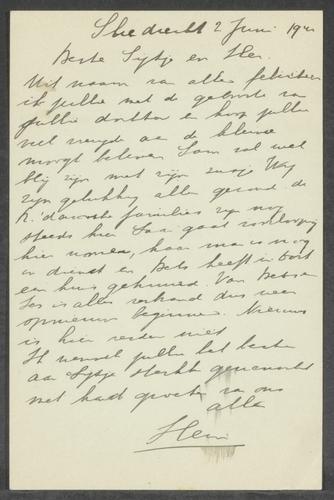 Sliedrecht 2 Juni 19
Beste Sijtje en Han.
Uit naam van allen feliciteer
ik jullie met de geboorte van
jullie dochter en hoop jullie
veel vreugde aan de kleine
moogt beleven. zal wel
blij zijn met zijn zusje. Wij
zijn gelukkig allen gezond. de
R. families zijn nog
steeds hier. gaat voorloopig
hier wonen, haar man is nog
in dienst en Bets heeft in Dort
een huis gehuurd. Van
is alles verbrand dus weer
opnieuw beginnen. Nieuws
is hier verder niet
Ik wensch jullie het beste
en Sijtje sterkte gewenscht
met hart groeten van ons
allen